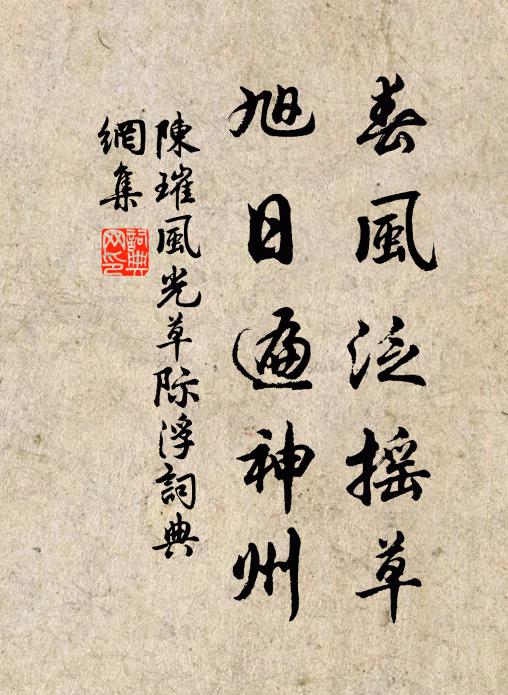 春風泛摇草
旭日遍神州
陳璀風光草际浮詞典
網集
詞典
网印